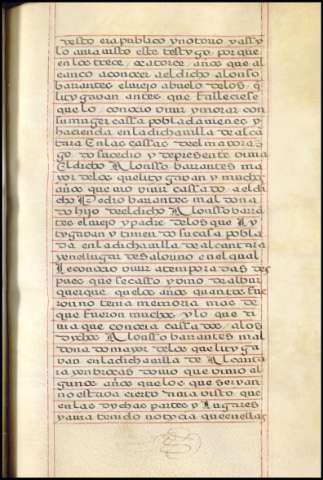 desto era publico y notorio y assy
lo auia uisto este testygo porque
en los trece o catorce años que al
canço a conocer a el dicho alonso
barrantes el uiejo abuelo de los q̃
lityguan antes que fallesciese
que lo conocio uiuir y morar con
su muger cassa poblada uienes y
hacienda en la dicha uilla de alcã
tara en las cassas del mayoraz
go do sucedio y
El dicho Alonsso barrantes ma
yor de los que lityguan y muchos
años que uio uiuir cassado a el di
cho Pedro barrantes maldona
do hijo de el dicho Alonsso barrã
tes el uiejo y padre de los que ly
tyguan y tener su casa pobla
da en la dicha uilla de alcantara
y en el lugar de salorino en el qual
le conocio uiuir a temporadas des
pues que se casso y uino de albur
querque que los años quantos fue
ron no tena memoria mas de
que fueron muchos y lo que
ma que conocia cassados a los
dychos Alonsso barrantes mal
dona do mayor de los que lityga
uan en la dicha uilla de Alcanta
ra y en brocas do uio que uiuio al
gunos años que los que seruan
no estaua cierto auia uisto que
en las dychas partes y lugares
y auia tenido notycia que en ellas